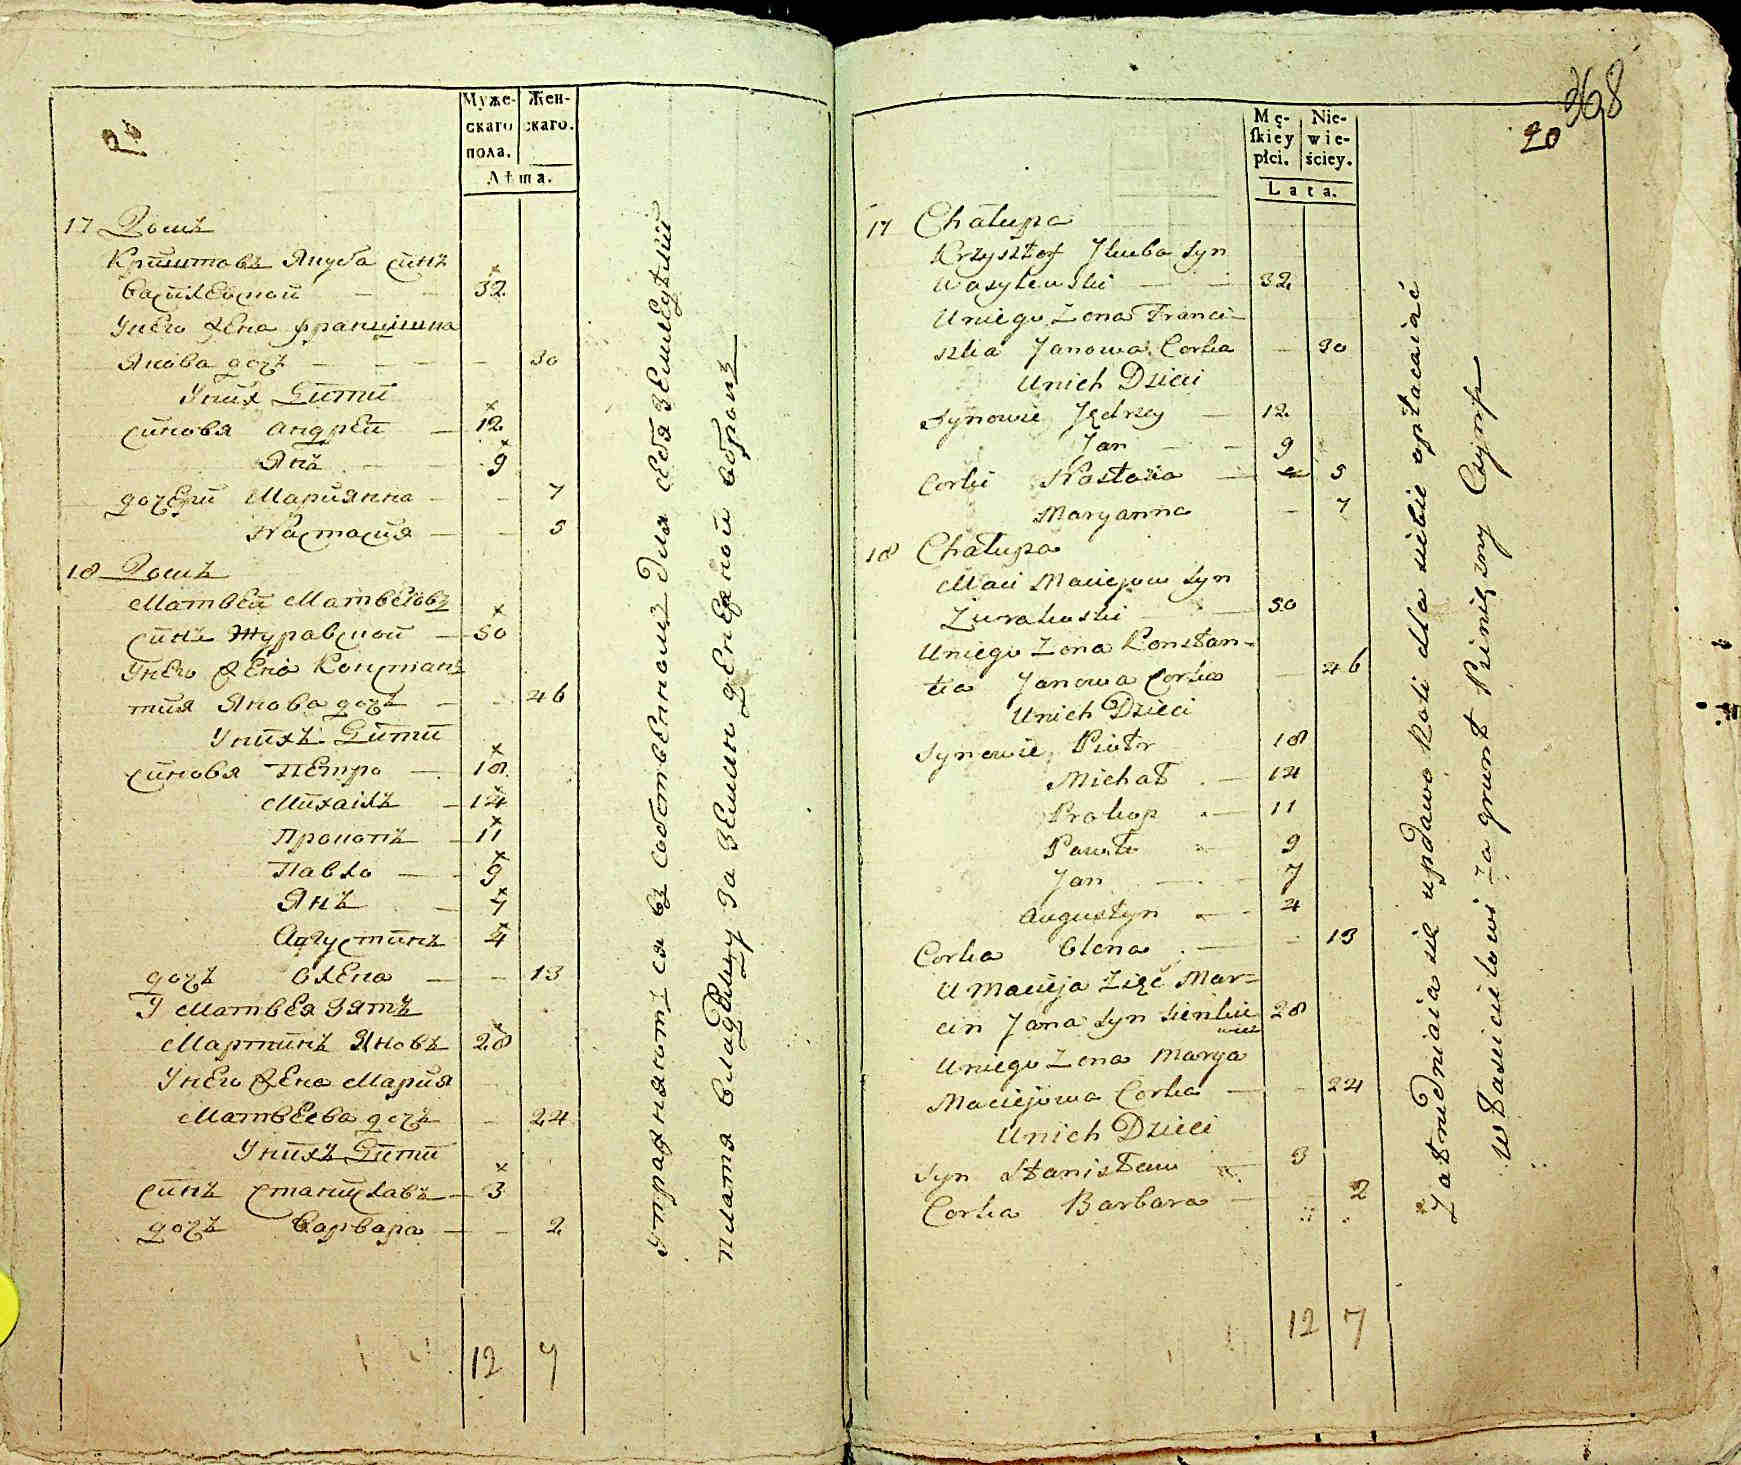 20
Муже-
скаго
пола.
Жен-
скаго.
Лѣта.
17 Домъ
Криштовъ Якуба синъ
Василевской — 32
У него жена Францишка
Янова дочъ — 30
У них Дити
синовя Андрей — 12
Янъ — 9
дочери Мариянна — 7
Настасия — 5
18 Домъ
Матвей Матвеювъ
синъ Журавской — 50
У него жена Констан
тия Янова дочъ — 46
У нихъ Дити
синовя Петро — 18
Михаилъ — 14
Прокопъ — 11
Павло — 9
Янъ — 7
Августинъ 4
дочъ Олена — 13
У Матвея зять
Мартинъ Яновъ 28
У него жена Мария
Матвеева дочъ — 24
У нихъ Дити
синъ Станиславъ — 3
дочъ Варвара — 2
12 7
Упражняютъ ся въ собственной для себя земледѣлии
платя владѣлцу за землю денежной оброкъ
368
20
Mę-
ſkiey
płci.
Nie-
wie-
ściey.
Lata.
17 Chałupa
Krzysztof Jkuba Syn
Wasylewski — 32
U niego Zona Franci-
szka Janowa Corka — 30
U nich Dzieci
Synowie Jędrzey — 12
Jan — 9
Corki Nastazia — 5
Maryanna — 7
18 Chałupa
Maci Maciejow Syn
Zurakoski — 50
U niego Zona Konstan-
tia Janowa Corka — 46
U nich Dzieci
Synowie Piotr 18
Michał — 14
Prokop — 11
Paweł 9
Jan — 7
Augustyn — 4
Corka Olena — 13
U Macieja Zięć Mar-
cin Jana Syn Sienkie 28
wicz
U niego Zona Marya
Maciejowa Corka — 24
U nich Dzieci
Syn Stanisław — 3
Corka Barbara — 2
12 7
Zatrudniaia się uprawo Roli dla siebie opłacaiąc
właścicielowi za grunt Pieniężny Czynsz